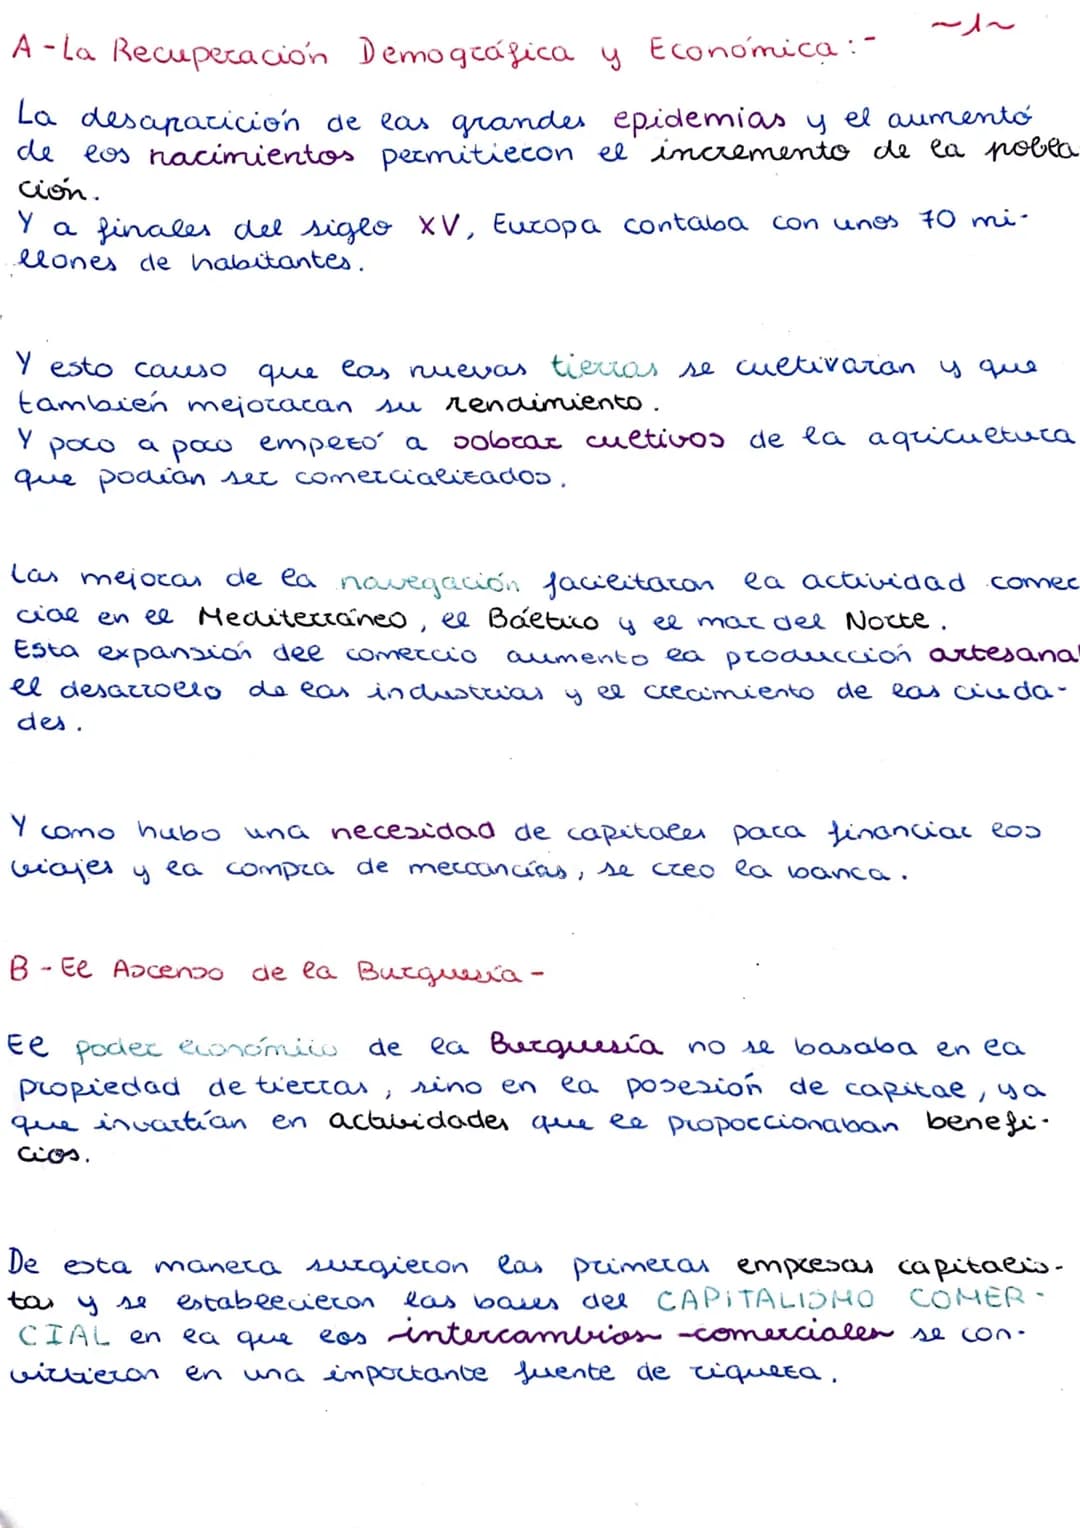 ~1~
A - La Recuperación Demográfica y Económica:-
La desaparición de las grandes epidemias y el aumentó
de los nacimientos permitieron el incremento de la pobla
ción.
Y a finales del siglo XV, Europa contaba con unos 70 mi-
llones de habitantes.
Y esto causo que las nuevas tierras se cultivaran y que
también mejoraran su rendimiento.
Y poco a poco empezó a sobrar cultivos de la agricultura
que podían ser comercializados.
Las mejoras de la navegación facilitaron la actividad comer
cial en el Mediterráneo, el Báltico y el mar del Norte.
Esta expansión del comercio aumento la producción artesanal
el desarrollo de las industrias y el crecimiento de las ciuda-
des.
Y como hubo una necesidad de capitales para financiar los
viajes y la compra de mercancías, se creo la banca.
B - El Ascenso de la Burguesía -
El poder económico de la Burguesía no se basaba en la
propiedad de tierras, sino en la posesión de capital, ya
que invartían en actividades que le propoccionaban benefi-
cios.
De esta manera surgieron las primeras empresas capitalis-
tas y se establecieron las bases del CAPITALISMO COMER-
CIAL en la que los intercambios comerciales se con-
virtieron en una importante fuente de riqueza.